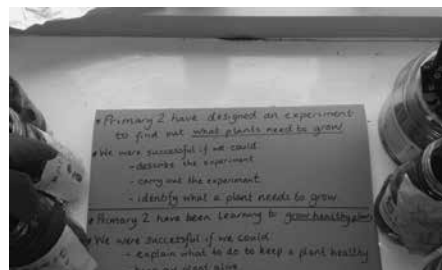 • Primary 2 have designed an experiment
to find out what plants need to grow
• We were successful if we could:
- describe the experiment
- carry out the experiment
- identify what a plant needs to grow
• Primary 2 have been learning to grow healthy plants
• We were successful if we could
- explain what to do to keep a plant healthy
- keep our plant alive